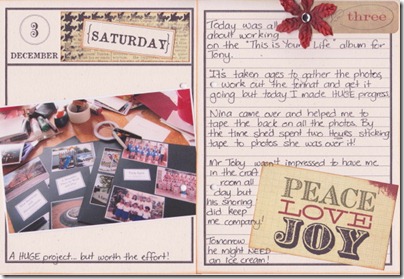 3
DECEMBER
{SATURDAY}
A HUGE project... but worth the effort!
three
Today was all
about working
on the "This is Your Life" album for
Tony.
It's taken ages to gather the photos,
work out the format and get it
going but today I made HUGE progress.
Nina came over and helped me to
tape the back on all the photos. By
the time she'd spent two hours sticking
tape to photos she was over it!
Mr Toby wasn't impressed to have me
in the craft
room all
day but
his snoring
did keep
me company!
Tomorrow
he might NEED
an ice cream!
PEACE
LOVE
JOY